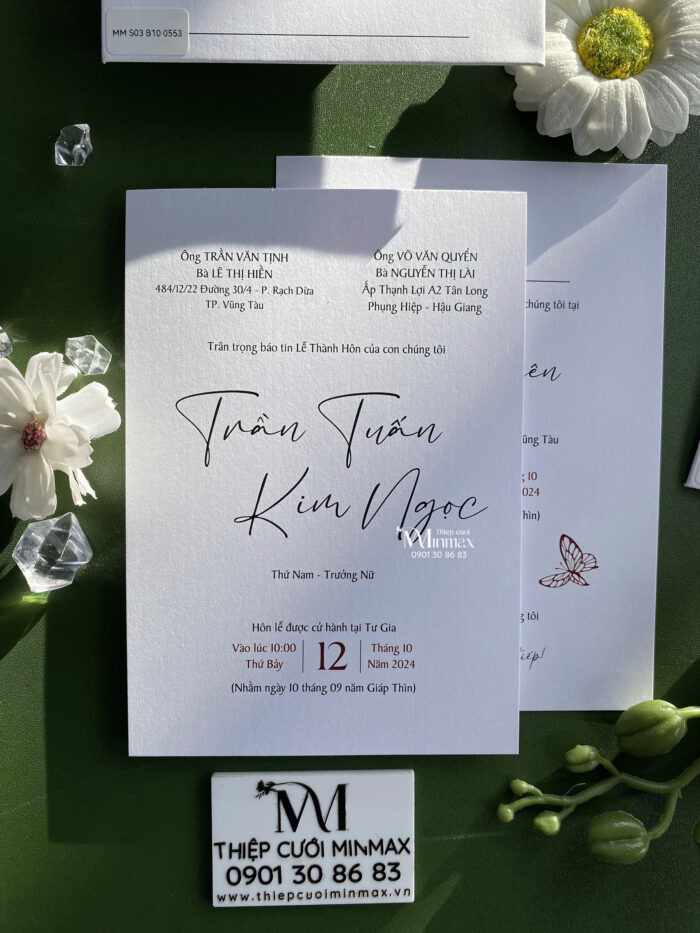 MM S03 B10 0553
Ông TRẦN VĂN TỊNH
Bà LÊ THỊ HIỀN
484/12/22 Đường 30/4 - P. Rạch Dừa
TP. Vũng Tàu
Ông VÕ VĂN QUYỂN
Bà NGUYỄN THỊ LÀI
Ấp Thạnh Lợi A2 Tân Long
Phụng Hiệp - Hậu Giang
Trân trọng báo tin Lễ Thành Hôn của con chúng tôi
Trần Tuấn
Kim Ngọc
Thiep cuoi
Minmax
0901 30 86 83
Thứ Nam - Trưởng Nữ
Hôn lễ được cử hành tại Tư Gia
Vào lúc 10:00
Thứ Bảy
12
Tháng 10
Năm 2024
(Nhằm ngày 10 tháng 09 năm Giáp Thìn)
chúng tôi tại
ên
ũng Tàu
10
2024
Thìn)
tôi
M
THIỆP CƯỚI MINMAX
0901 30 86 83
www.thiepcuoiminmax.vn